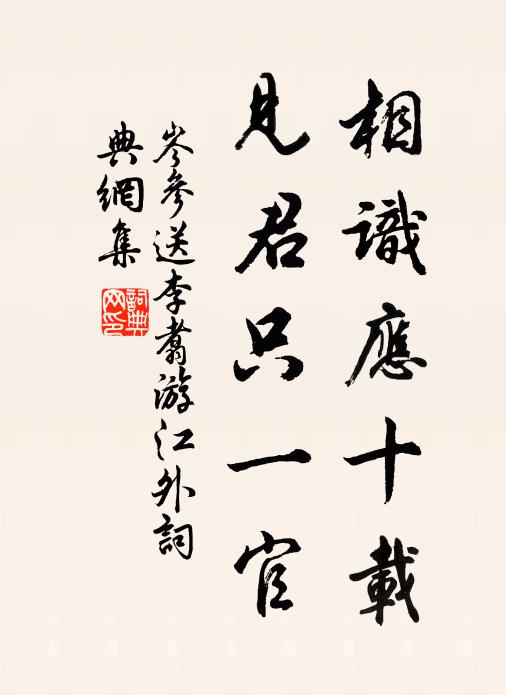 相識應十載
見君只一官
岑參送李翥游江外詞
典網集
詞典網印